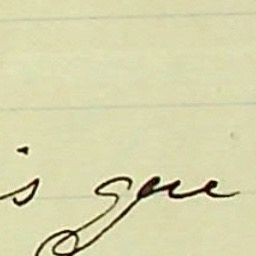 is gone